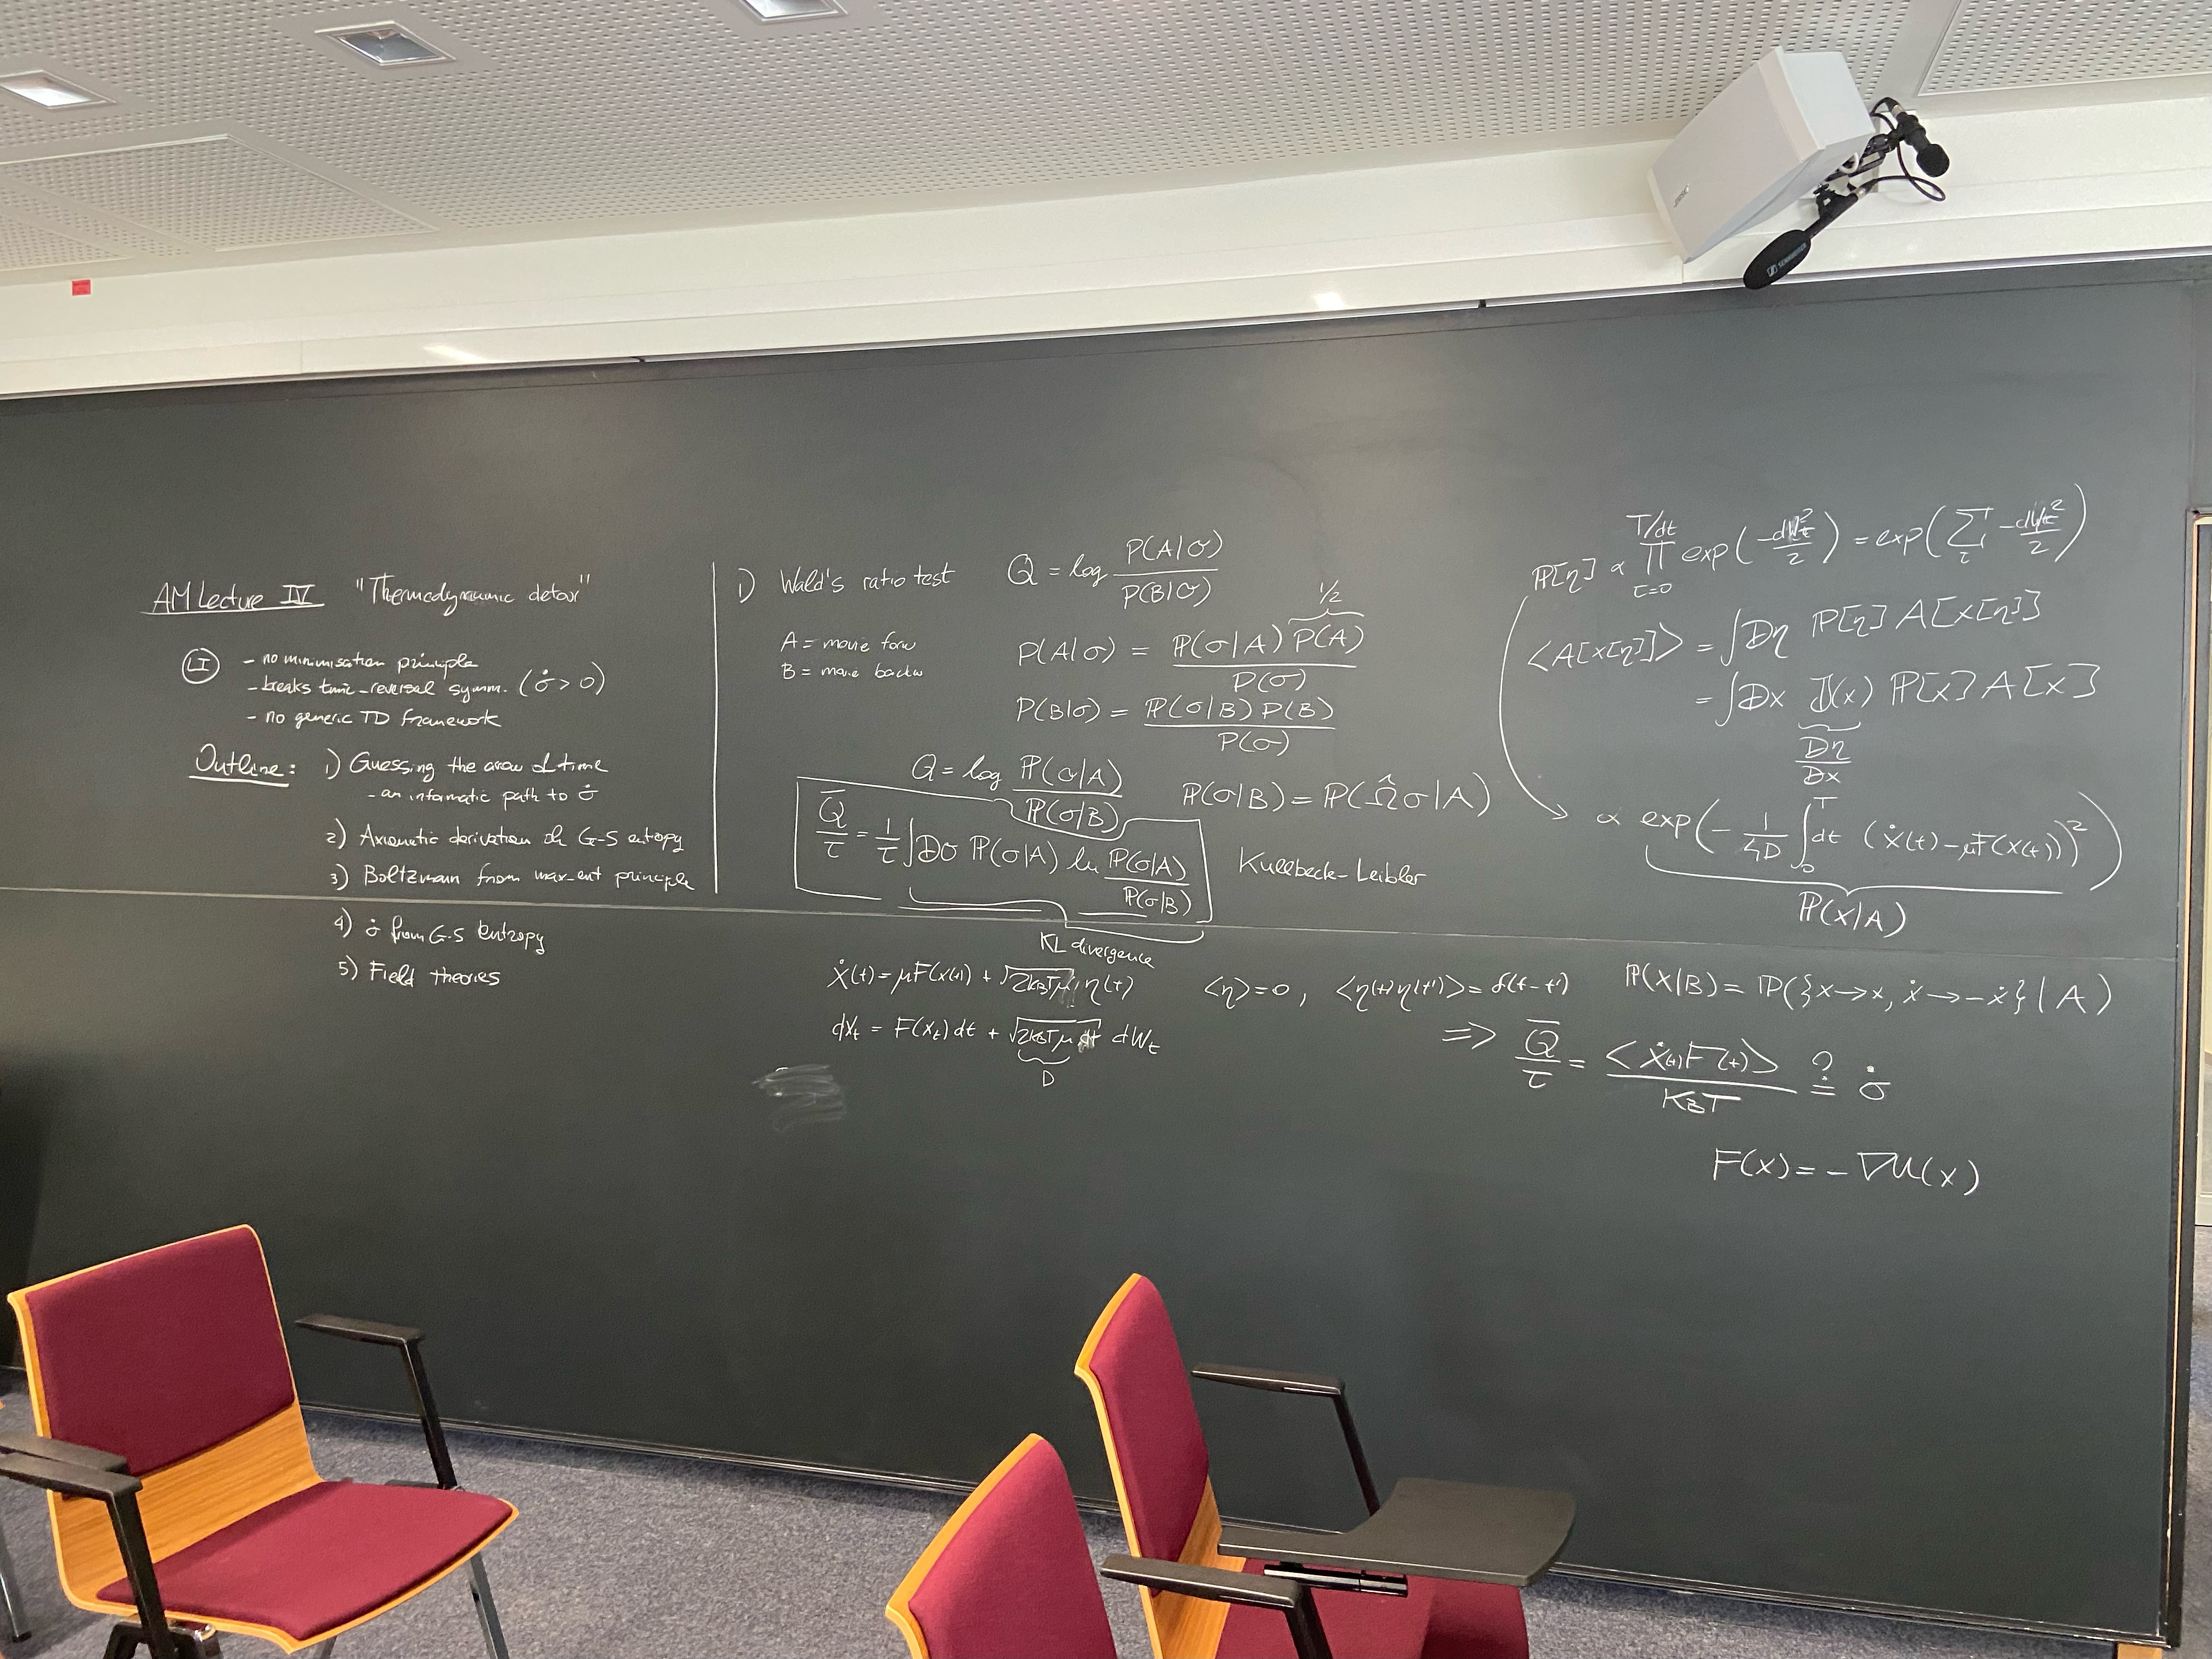 AM Lecture IV "Thermodynamic detour"
LI - no minimisation principle
- breaks time-reversal symm. (σ̇ > 0)
- no generic TD framework
Outline: 1) Guessing the arrow of time
- an informatic path to σ̇
2) Axiomatic derivation of G-S entropy
3) Boltzmann from max-ent principle
4) σ̇ from G-S entropy
5) Field theories
1) Wald's ratio test Q = log P(A|σ) / P(B|σ)
A = movie forw
B = movie backw
1/2
P(A|σ) = ℙ(σ|A) P(A) / P(σ)
P(B|σ) = ℙ(σ|B) P(B) / P(σ)
Q = log ℙ(σ|A) / ℙ(σ|B) ℙ(σ|B) = ℙ(Ω̂σ|A)
Q̄/τ = 1/τ ∫Dσ ℙ(σ|A) ln ℙ(σ|A) / ℙ(σ|B) Kullbeck-Leibler
KL divergence
ẋ(t) = μF(x(t)) + √2kBTμ η(t) <η>=0, <η(t)η(t')>= δ(t-t')
dXt = F(xt) dt + √2kBTμ dWt
D
ℙ[η] ∝ ∏ T/dt τ=0 exp(-dWt²/2) = exp(∑τ -dWt²/2)
<A[x[η]]> = ∫Dη ℙ[η] A[x[η]]
= ∫Dx J(x) ℙ[x] A[x]
Dη/Dx
∝ exp(- 1/4D ∫₀ᵀ dt (ẋ(t)-μF(x(t)))²)
ℙ(x|A)
ℙ(x|B) = ℙ({x→x, ẋ→-ẋ}|A)
=> Q̄/τ = <ẋ(t)F(t)> / kBT ?= σ̇
F(x) = -∇U(x)
SENNHEISER